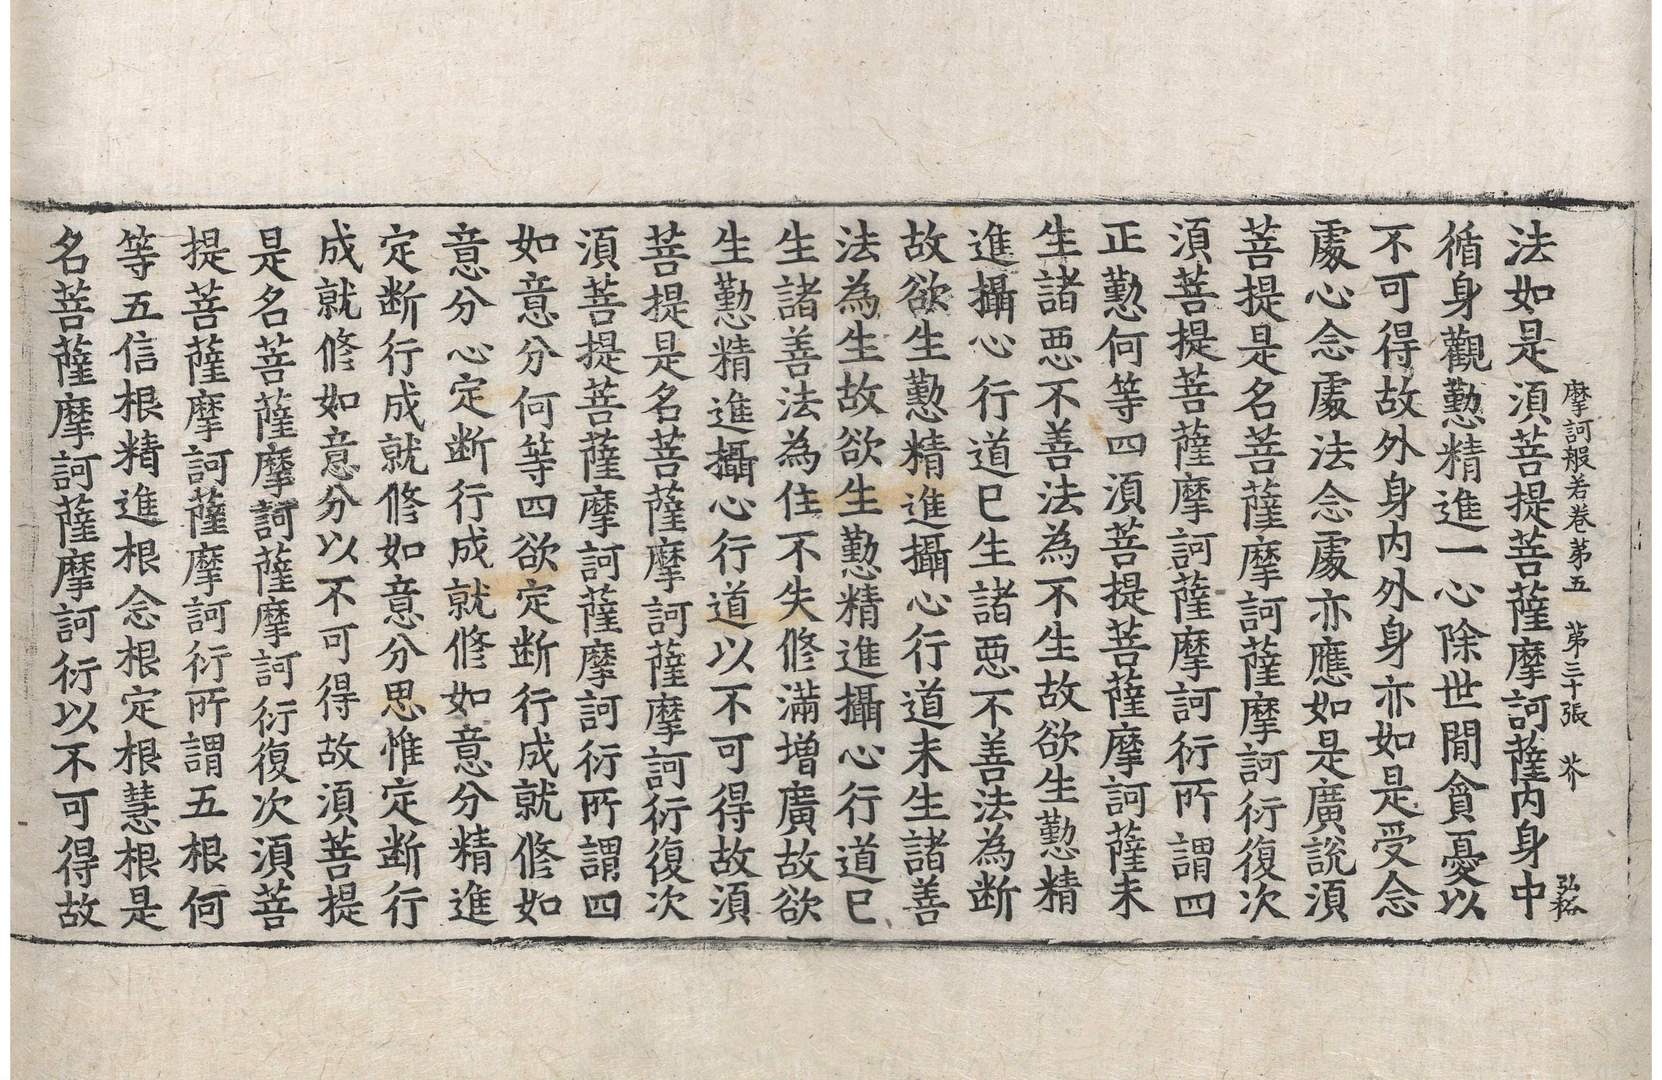 摩訶般若卷第五 第三十張 芥 弘裕
法如是須菩提菩薩摩訶薩內身中
循身觀懃精進一心除世間貪憂以
不可得故外身內外身亦如是受念
處心念處法念處亦應如是廣說須
菩提是名菩薩摩訶薩摩訶衍復次
須菩提菩薩摩訶薩摩訶衍所謂四
正懃何等四須菩提菩薩摩訶薩未
生諸惡不善法為不生故欲生懃精
進攝心行道已生諸惡不善法為断
故欲生懃精進攝心行道未生諸善
法為生故欲生懃精進攝心行道已
生諸善法為住不失修滿增廣故欲
生懃精進攝心行道以不可得故須
菩提是名菩薩摩訶薩摩訶衍復次
須菩提菩薩摩訶薩摩訶衍所謂四
如意分何等四欲定断行成就修如
意分心定断行成就修如意分精進
定断行成就修如意分思惟定断行
成就修如意分以不可得故須菩提
是名菩薩摩訶薩摩訶衍復次須菩
提菩薩摩訶薩摩訶衍所謂五根何
等五信根精進根念根定根慧根是
名菩薩摩訶薩摩訶衍以不可得故